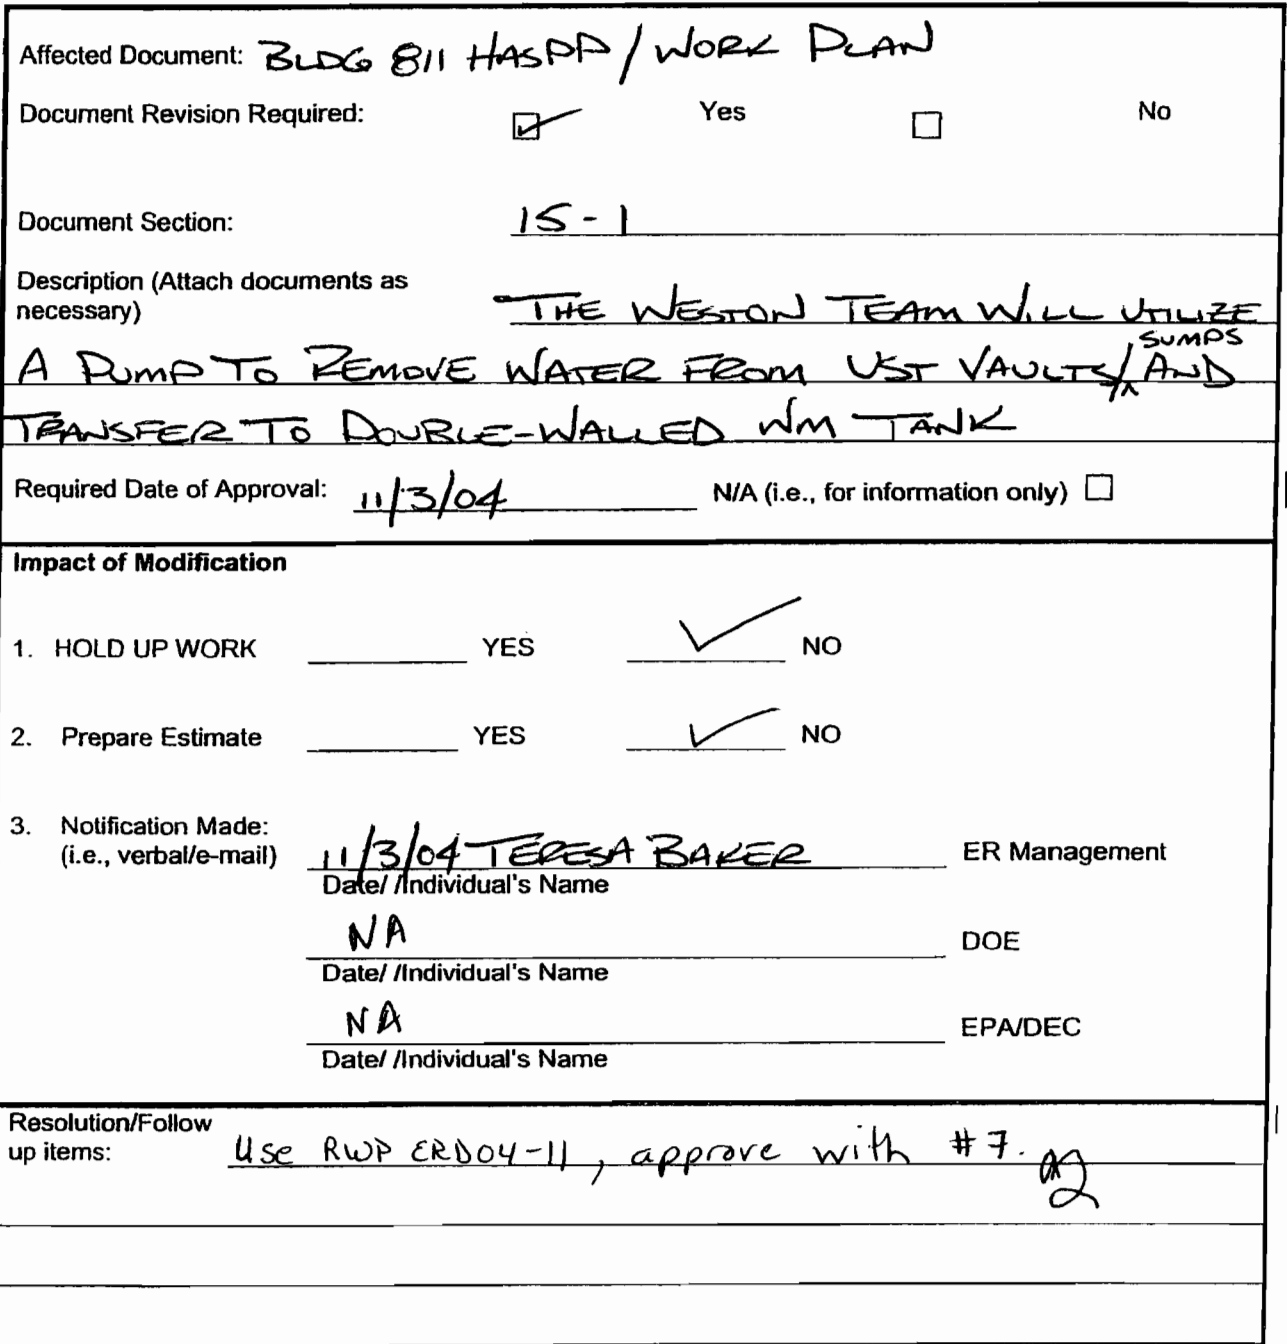 Affected Document: BLDG 811 HASPP/WORK PLAN
Document Revision Required: ☑ Yes ☐ No
Document Section: 15-1
Description (Attach documents as
necessary) THE WESTON TEAM WILL UTILIZE
A PUMP TO REMOVE WATER FROM UST VAULTS/SUMPS AND
TRANSFER TO DOUBLE-WALLED WM TANK
Required Date of Approval: 11/3/04 N/A (i.e., for information only) ☐
Impact of Modification
1. HOLD UP WORK YES ✓ NO
2. Prepare Estimate YES ✓ NO
3. Notification Made:
(i.e., verbal/e-mail) 11/3/04 TERESA BAKER ER Management
Date/ /Individual's Name
NA DOE
Date/ /Individual's Name
NA EPA/DEC
Date/ /Individual's Name
Resolution/Follow
up items: Use RWP ERD04-11, approve with #7.